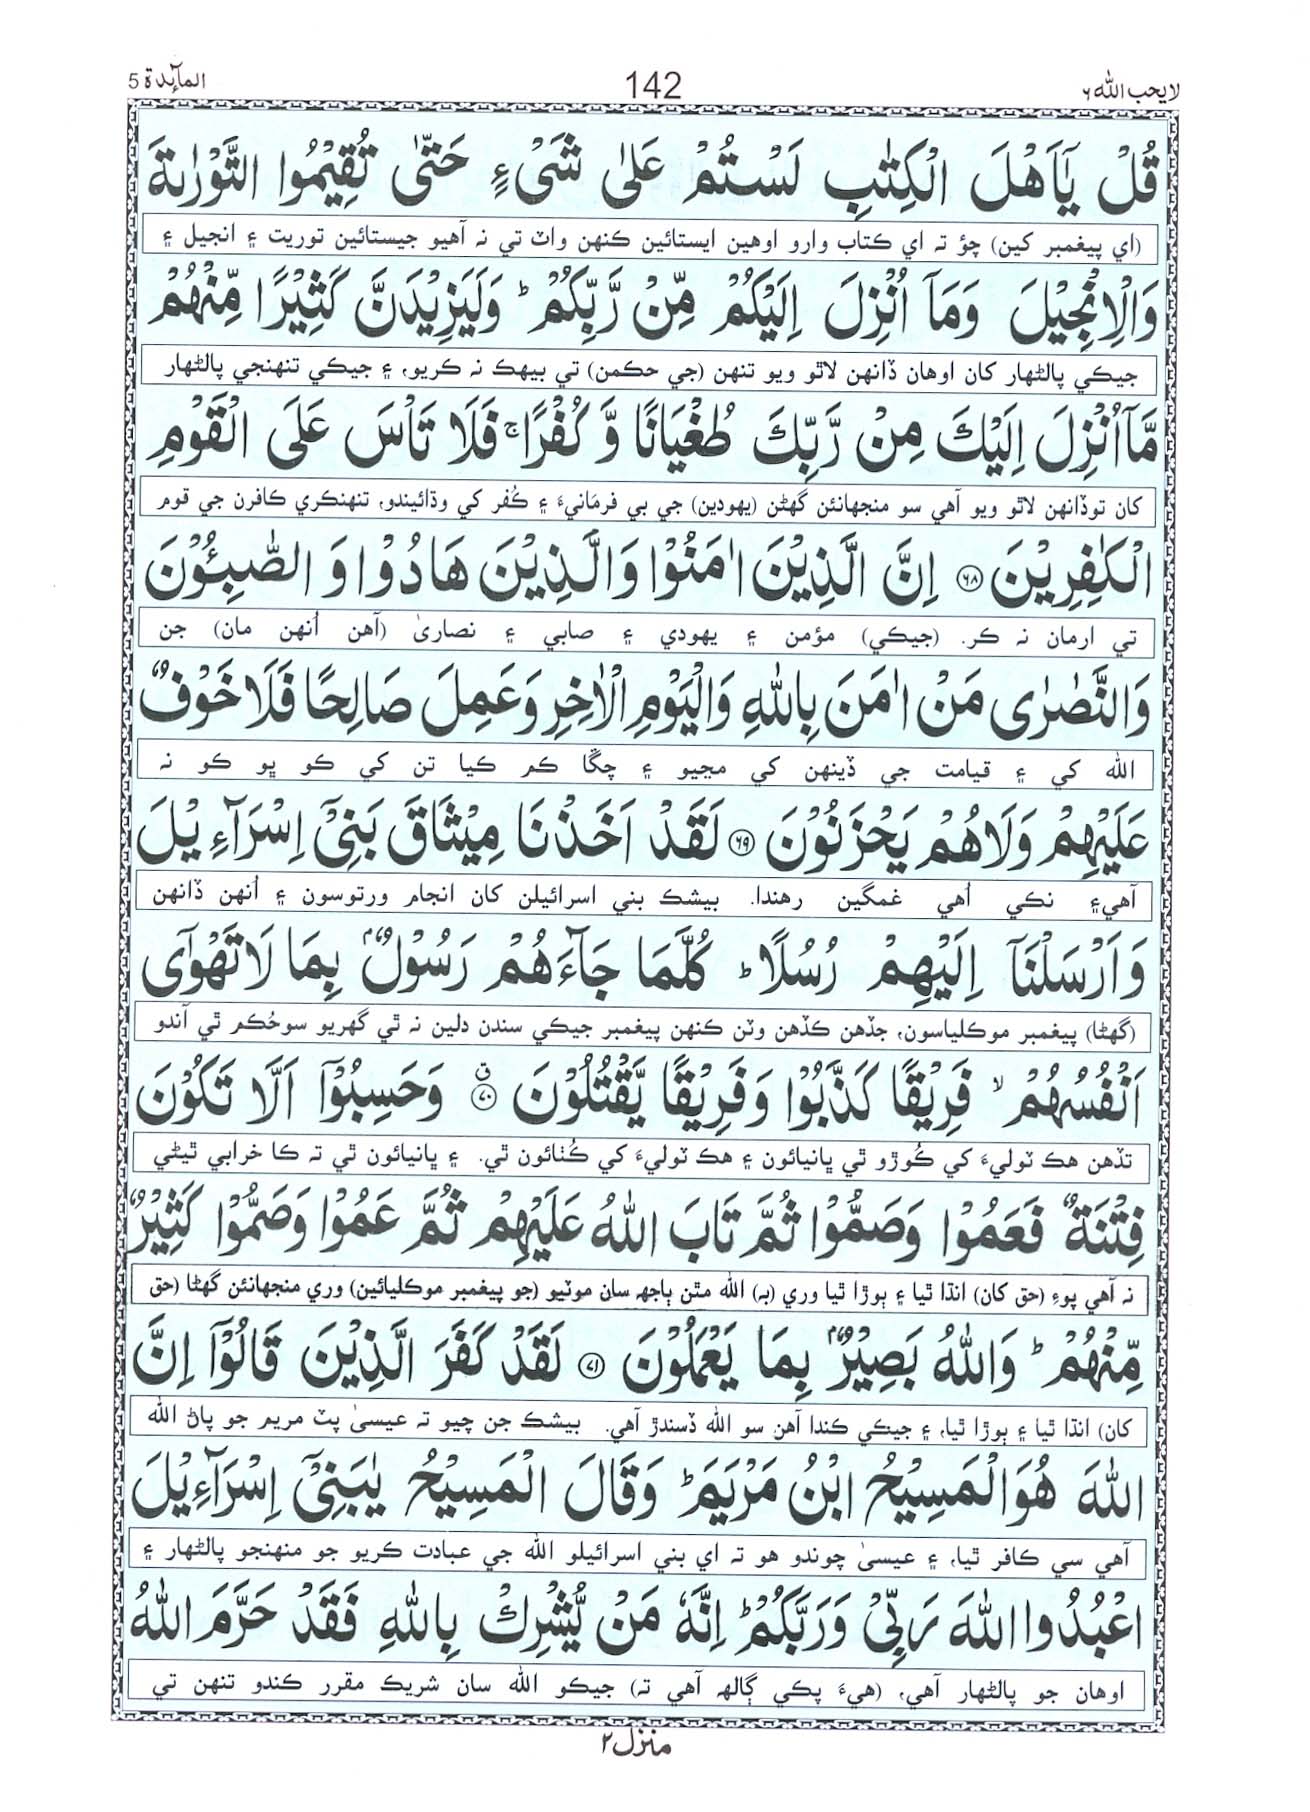 لا يحب الله ٦ 142 المآئدة 5
قُلْ يٰٓاَهْلَ الْكِتٰبِ لَسْتُمْ عَلٰى شَىْءٍ حَتّٰى تُقِيْمُوا التَّوْرٰىةَ
(اي پيغمبر کين) چؤ تہ اي ڪتاب وارو اوهين ايستائين ڪنهن واٽ تي نہ آهيو جيستائين توريت ۽ انجيل ۽
وَالْاِنْجِيْلَ وَمَآ اُنْزِلَ اِلَيْكُمْ مِّنْ رَّبِّكُمْ ؕ وَلَيَزِيْدَنَّ كَثِيْرًا مِّنْهُمْ
جيڪي پالڻهار کان اوهان ڏانهن لاٿو ويو تنهن (جي حڪمن) تي بيهڪ نہ ڪريو، ۽ جيڪي تنهنجي پالڻهار
مَّآ اُنْزِلَ اِلَيْكَ مِنْ رَّبِّكَ طُغْيَانًا وَّ كُفْرًا ۚ فَلَا تَاْسَ عَلَى الْقَوْمِ
کان توڏانهن لاٿو ويو آهي سو منجهانئن گھڻن (يهودين) جي بي فرمانيءَ ۽ ڪُفر کي وڌائيندو، تنهنڪري ڪافرن جي قوم
الْكٰفِرِيْنَ ﴿٦٨﴾ اِنَّ الَّذِيْنَ اٰمَنُوْا وَالَّذِيْنَ هَادُوْا وَ الصّٰبِـُٔوْنَ
تي ارمان نہ ڪر. (جيڪي) مؤمن ۽ يهودي ۽ صابي ۽ نصاريٰ (آهن اُنهن مان) جن
وَالنَّصٰرٰى مَنْ اٰمَنَ بِاللّٰهِ وَالْيَوْمِ الْاٰخِرِ وَعَمِلَ صَالِحًا فَلَا خَوْفٌ
الله کي ۽ قيامت جي ڏينهن کي مڃيو ۽ چڱا ڪم ڪيا تن کي ڪو ڀو ڪو نہ
عَلَيْهِمْ وَلَاهُمْ يَحْزَنُوْنَ ﴿٦٩﴾ لَقَدْ اَخَذْنَا مِيْثَاقَ بَنِىْٓ اِسْرَآءِيْلَ
آهي۽ نڪي اُهي غمگين رهندا. بيشڪ بني اسرائيلن کان انجام ورتوسون ۽ اُنهن ڏانهن
وَاَرْسَلْنَآ اِلَيْهِمْ رُسُلًا ؕ كُلَّمَا جَآءَهُمْ رَسُوْلٌۢ بِمَا لَا تَهْوٰٓى
(گھڻا) پيغمبر موڪلياسون، جڏهن ڪڏهن وٽن ڪنهن پيغمبر جيڪي سندن دلين نہ ٿي گھريو سو حُڪم ٿي آندو
اَنْفُسُهُمْ ۙ فَرِيْقًا كَذَّبُوْا وَفَرِيْقًا يَّقْتُلُوْنَ ۗ﴿٧٠﴾ وَحَسِبُوْٓا اَلَّا تَكُوْنَ
تڏهن هڪ ٽوليءَ کي ڪُوڙو ٿي ڀانيائون ۽ هڪ ٽوليءَ کي ڪُٺائون ٿي. ۽ ڀانيائون ٿي تہ ڪا خرابي ٿيڻي
فِتْنَةٌ فَعَمُوْا وَصَمُّوْا ثُمَّ تَابَ اللّٰهُ عَلَيْهِمْ ثُمَّ عَمُوْا وَصَمُّوْا كَثِيْرٌ
نہ آهي پوءِ (حق کان) انڌا ٿيا ۽ ٻوڙا ٿيا وري (بہ) الله مٿن ٻاجهہ سان موٽيو (جو پيغمبر موڪليائين) وري منجهانئن گھڻا (حق
مِّنْهُمْ ؕ وَاللّٰهُ بَصِيْرٌۢ بِمَا يَعْمَلُوْنَ ﴿٧١﴾ لَقَدْ كَفَرَ الَّذِيْنَ قَالُوْٓا اِنَّ
کان) انڌا ٿيا ۽ ٻوڙا ٿيا، ۽ جيڪي ڪندا آهن سو الله ڏسندڙ آهي. بيشڪ جن چيو تہ عيسىٰ پٽ مريم جو پاڻ الله
اللّٰهَ هُوَ الْمَسِيْحُ ابْنُ مَرْيَمَ ؕ وَقَالَ الْمَسِيْحُ يٰبَنِىْٓ اِسْرَآءِيْلَ
آهي سي ڪافر ٿيا، ۽ عيسىٰ چوندو هو تہ اي بني اسرائيلو الله جي عبادت ڪريو جو منهنجو پالڻهار ۽
اعْبُدُوا اللّٰهَ رَبِّىْ وَرَبَّكُمْ ؕ اِنَّهٗ مَنْ يُّشْرِكْ بِاللّٰهِ فَقَدْ حَرَّمَ اللّٰهُ
اوهان جو پالڻهار آهي، (هيءَ پڪي ڳالهہ آهي تہ) جيڪو الله سان شريڪ مقرر ڪندو تنهن تي
منزل ٢